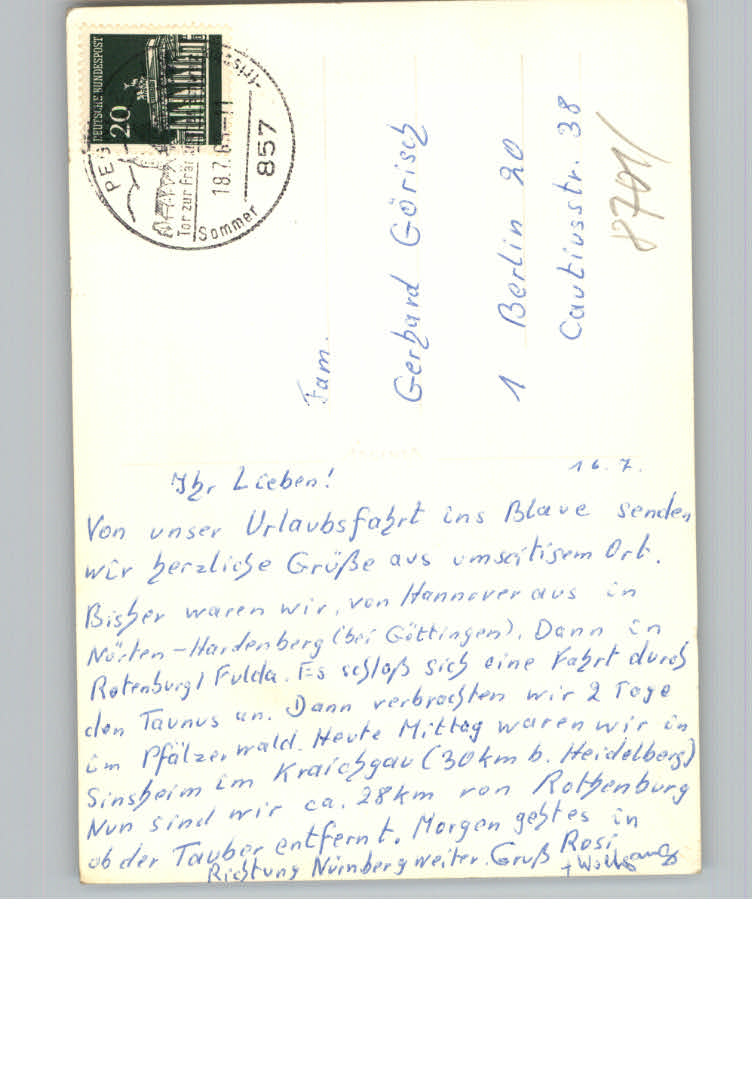 DEUTSCHE BUNDESPOST
20
Tor zur
18.7.6
857
Sommer
Fam.
Gerhard Görisch
1 Berlin 20
Cautiusstr. 38
8701/
16.7.
Ihr Lieben!
Von unser Urlaubsfahrt ins Blaue senden
wir herzliche Grüße aus umseitigem Ort.
Bisher waren wir, von Hannover aus in
Nörten-Hardenberg (bei Göttingen). Dann in
Rotenburg/Fulda. Es schloß sich eine Fahrt durch
den Taunus an. Dann verbrachten wir 2 Tage
im Pfälzerwald. Heute Mittag waren wir in
Sinsheim im Kraichgau (30km b. Heidelberg)
Nun sind wir ca. 28km von Rothenburg
ob der Tauber entfernt. Morgen gehts in
Richtung Nürnberg weiter. Gruß Rosi
+ Wolfgang